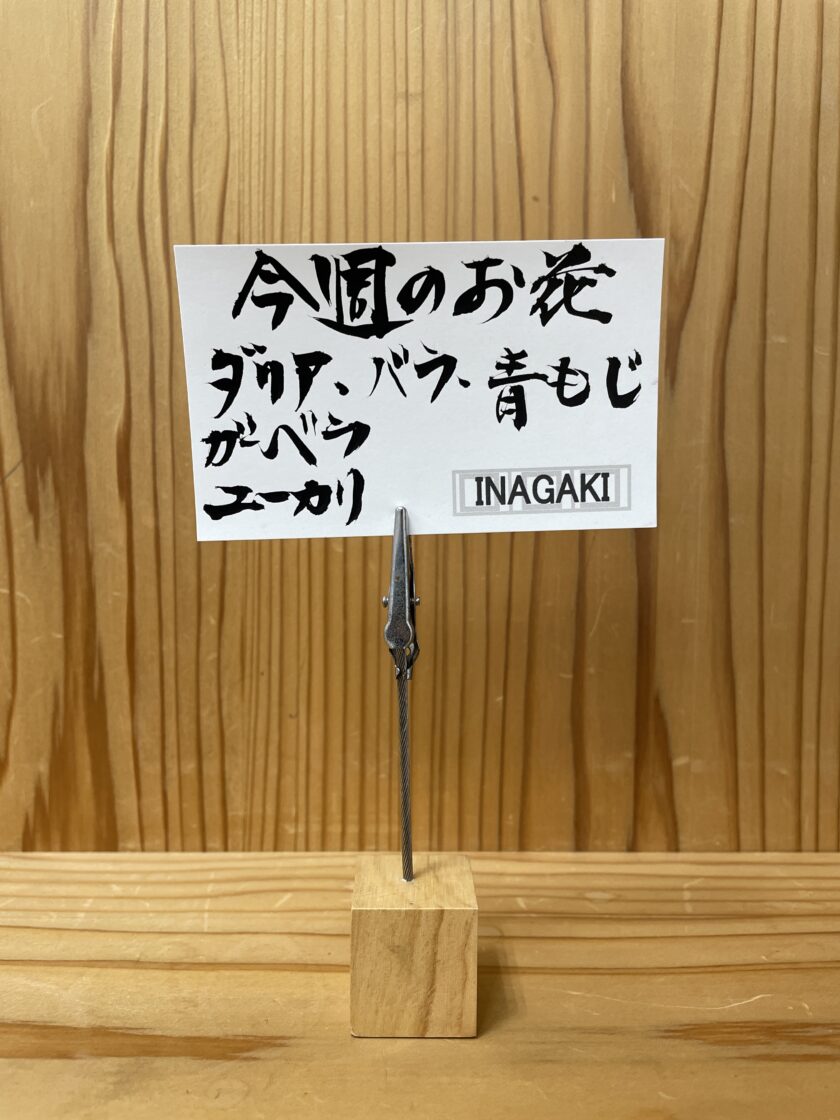 今週のお花
ダリア、バラ、青もじ
ガーベラ
ユーカリ
INAGAKI